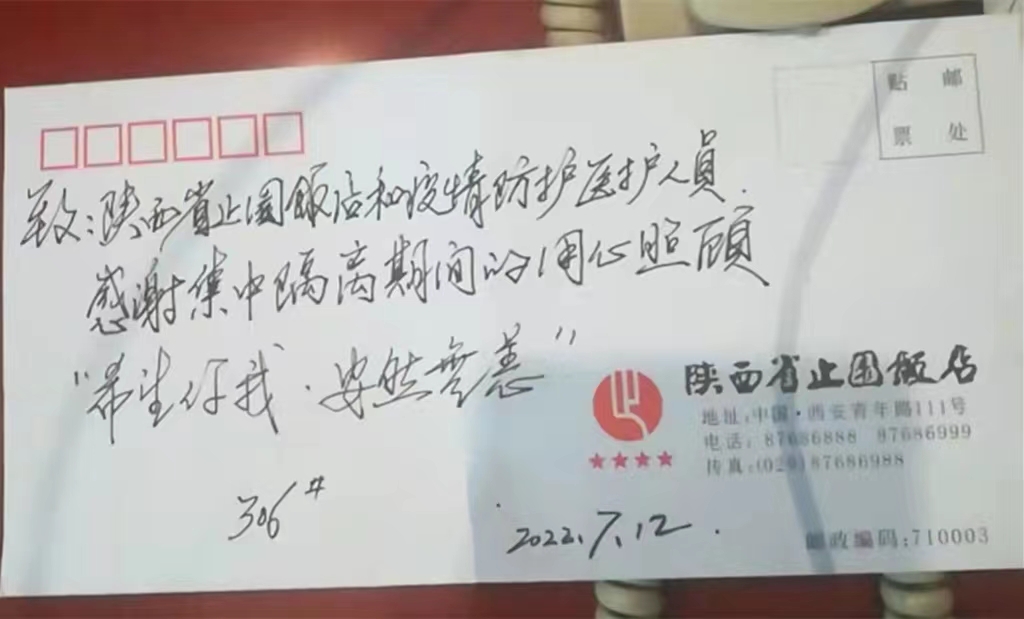 贴 邮
票 处
致:陕西省止园飯店和疫情防护医护人員.
感谢集中隔离期间的用心照顾
"希生你我·安然無恙"
306#
2022.7.12.
陕西省止园饭店
地址:中国·西安青年路111号
电话:87686888 87686999
传真:(029)87686988
邮政编码:710003